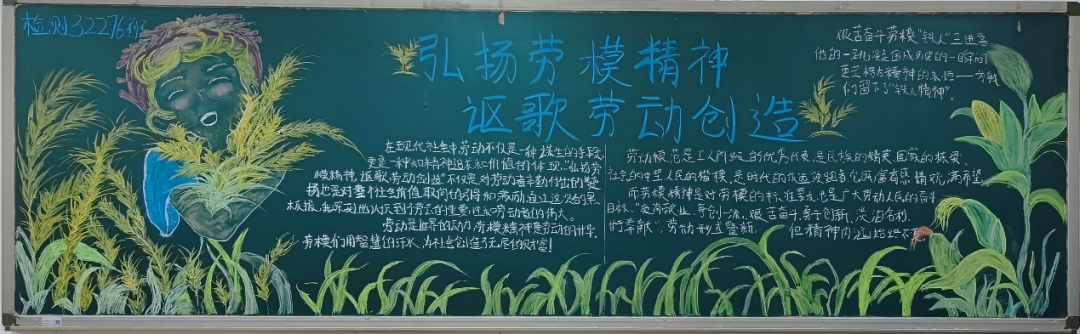 检测32276班
弘扬劳模精神
讴歌劳动创造
艰苦奋斗劳模"铁人"王进喜
他的一到凝固成历史的一瞬间
们留下了"铁人精神"。
在现代社会中,劳动不仅是一种谋生的手段
更是一种和精神追求和价值的体现。"弘扬劳
模精神,讴歌劳动创造"不仅是对劳动者辛勤付出的
扬也是对整个社会价值取向的引导和激励,通过这次的黑
板报,我深刻地认识到了劳动的重要性和劳动者的伟大。
劳动是世界的动力,劳模精神是劳动的计率
劳模们用智慧的汗水,为社会创造了无尽的财富!
劳动模范是工人阶级的优秀代表,是民族的精英,国家的栋梁
社会的中坚人民的楷模,是时代的永远领跑者它既富有感情欢,满希望,
而劳模精神是对劳模的标准要求也是广大劳动人民的奋斗
目标。"爱岗敬业、争创一流、艰苦奋斗、勇于创新、淡泊名利、
的奉献",劳动形式重新, 但精神内涵始终不